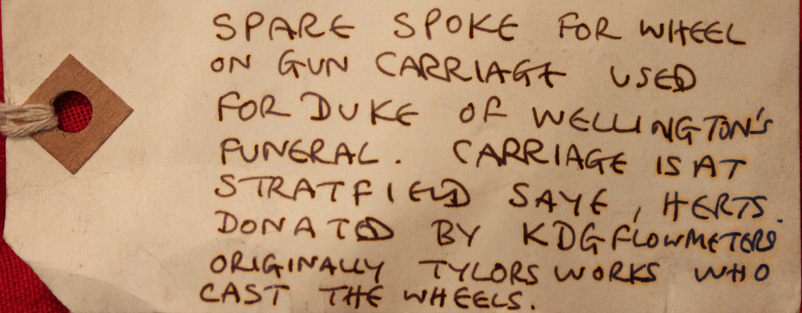 SPARE SPOKE FOR WHEEL
ON GUN CARRIAGE USED
FOR DUKE OF WELLINGTON'S
FUNERAL. CARRIAGE IS AT
STRATFIELD SAYE, HERTS.
DONATED BY KDG FLOWMETERS
ORIGINALLY TYLORS WORKS WHO
CAST THE WHEELS.